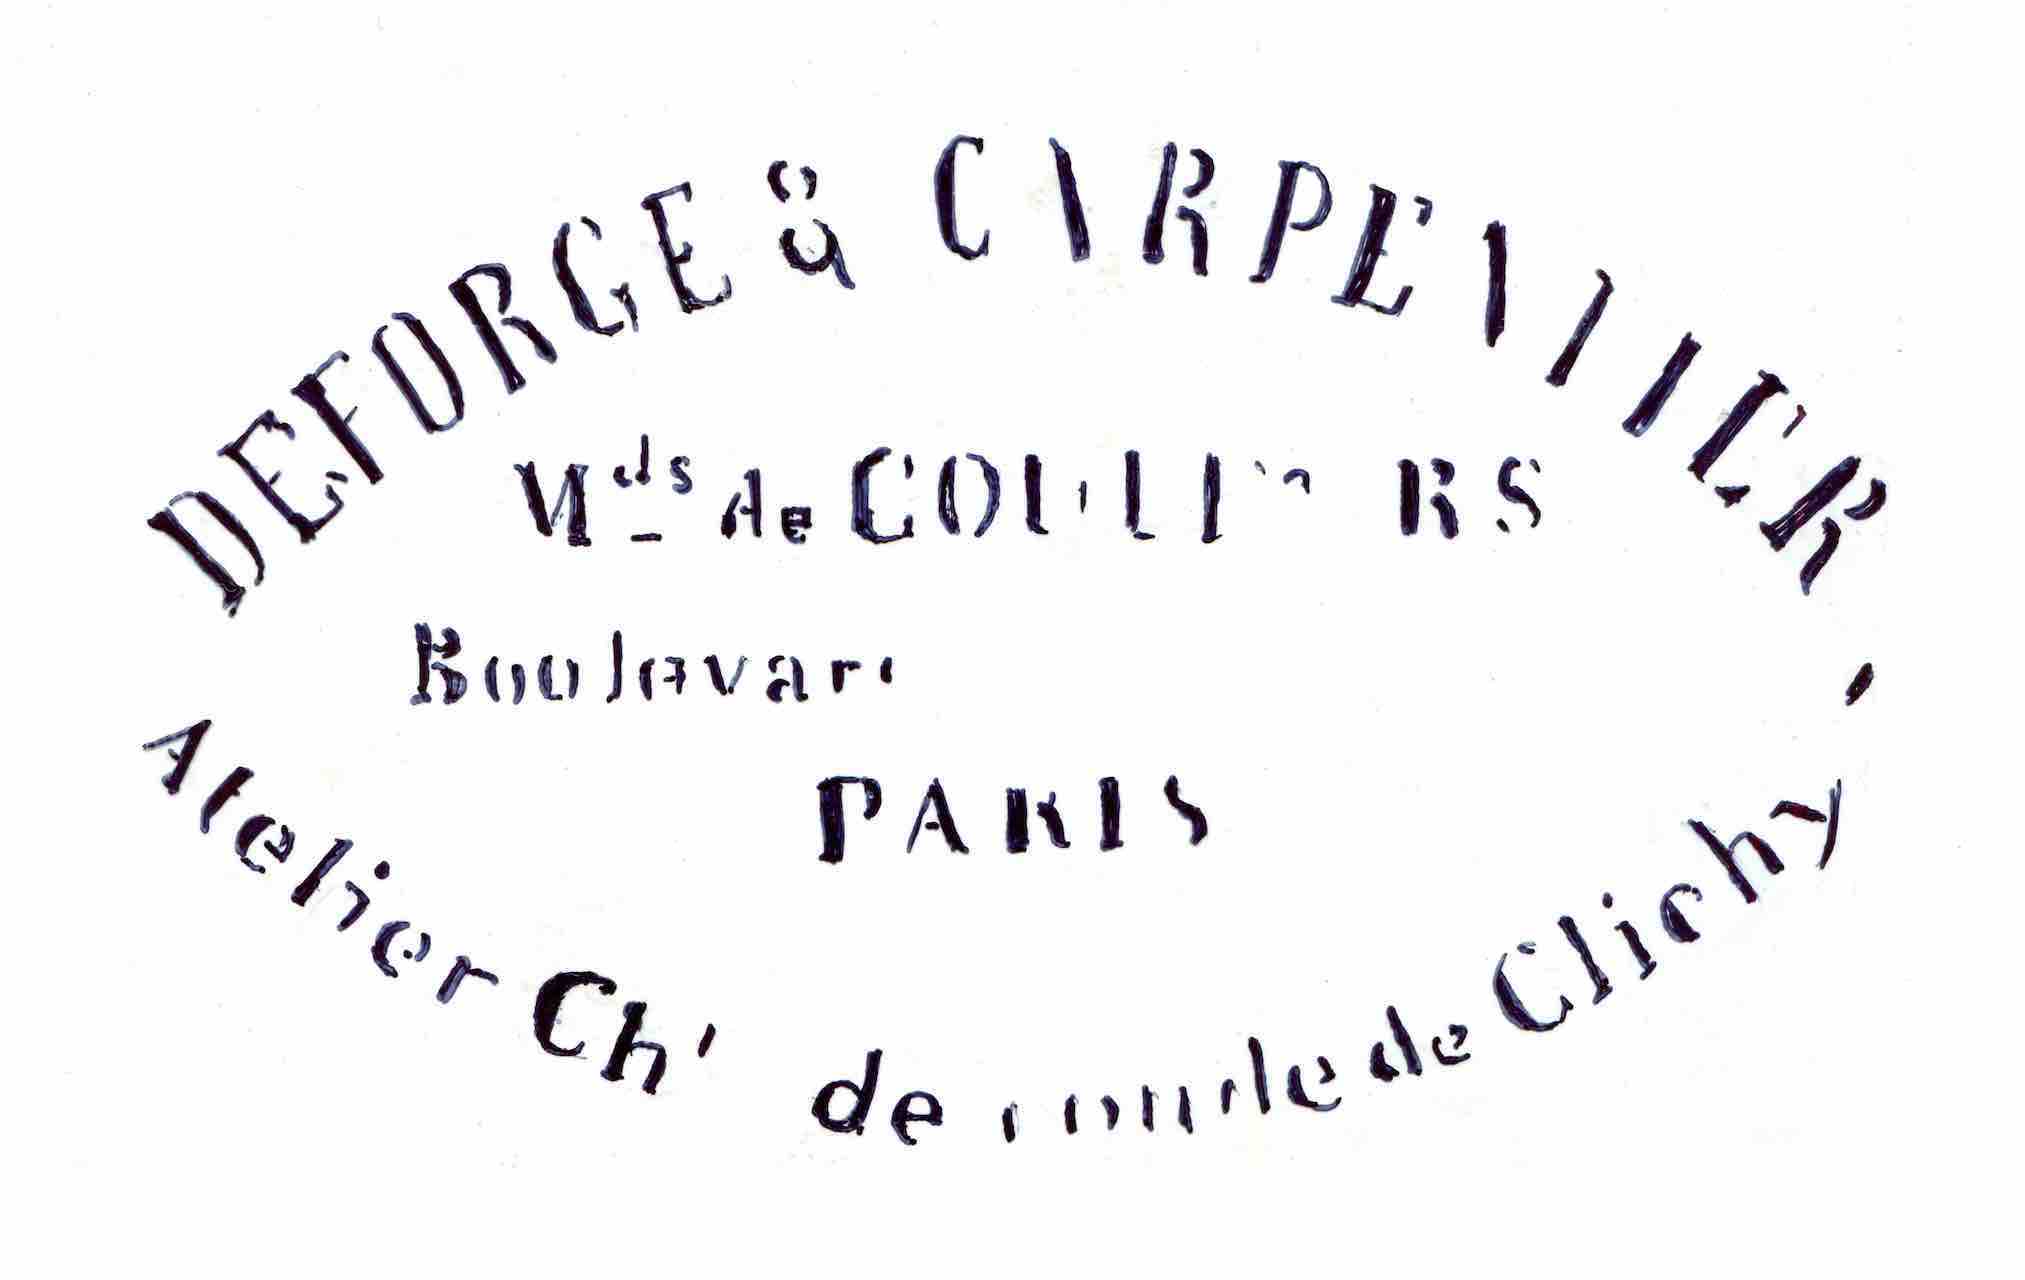 DEFORGE & CARPENTIER
Mds de COULEURS
Boulevard
PARIS
Atelier Ch. de ronde de Clichy.